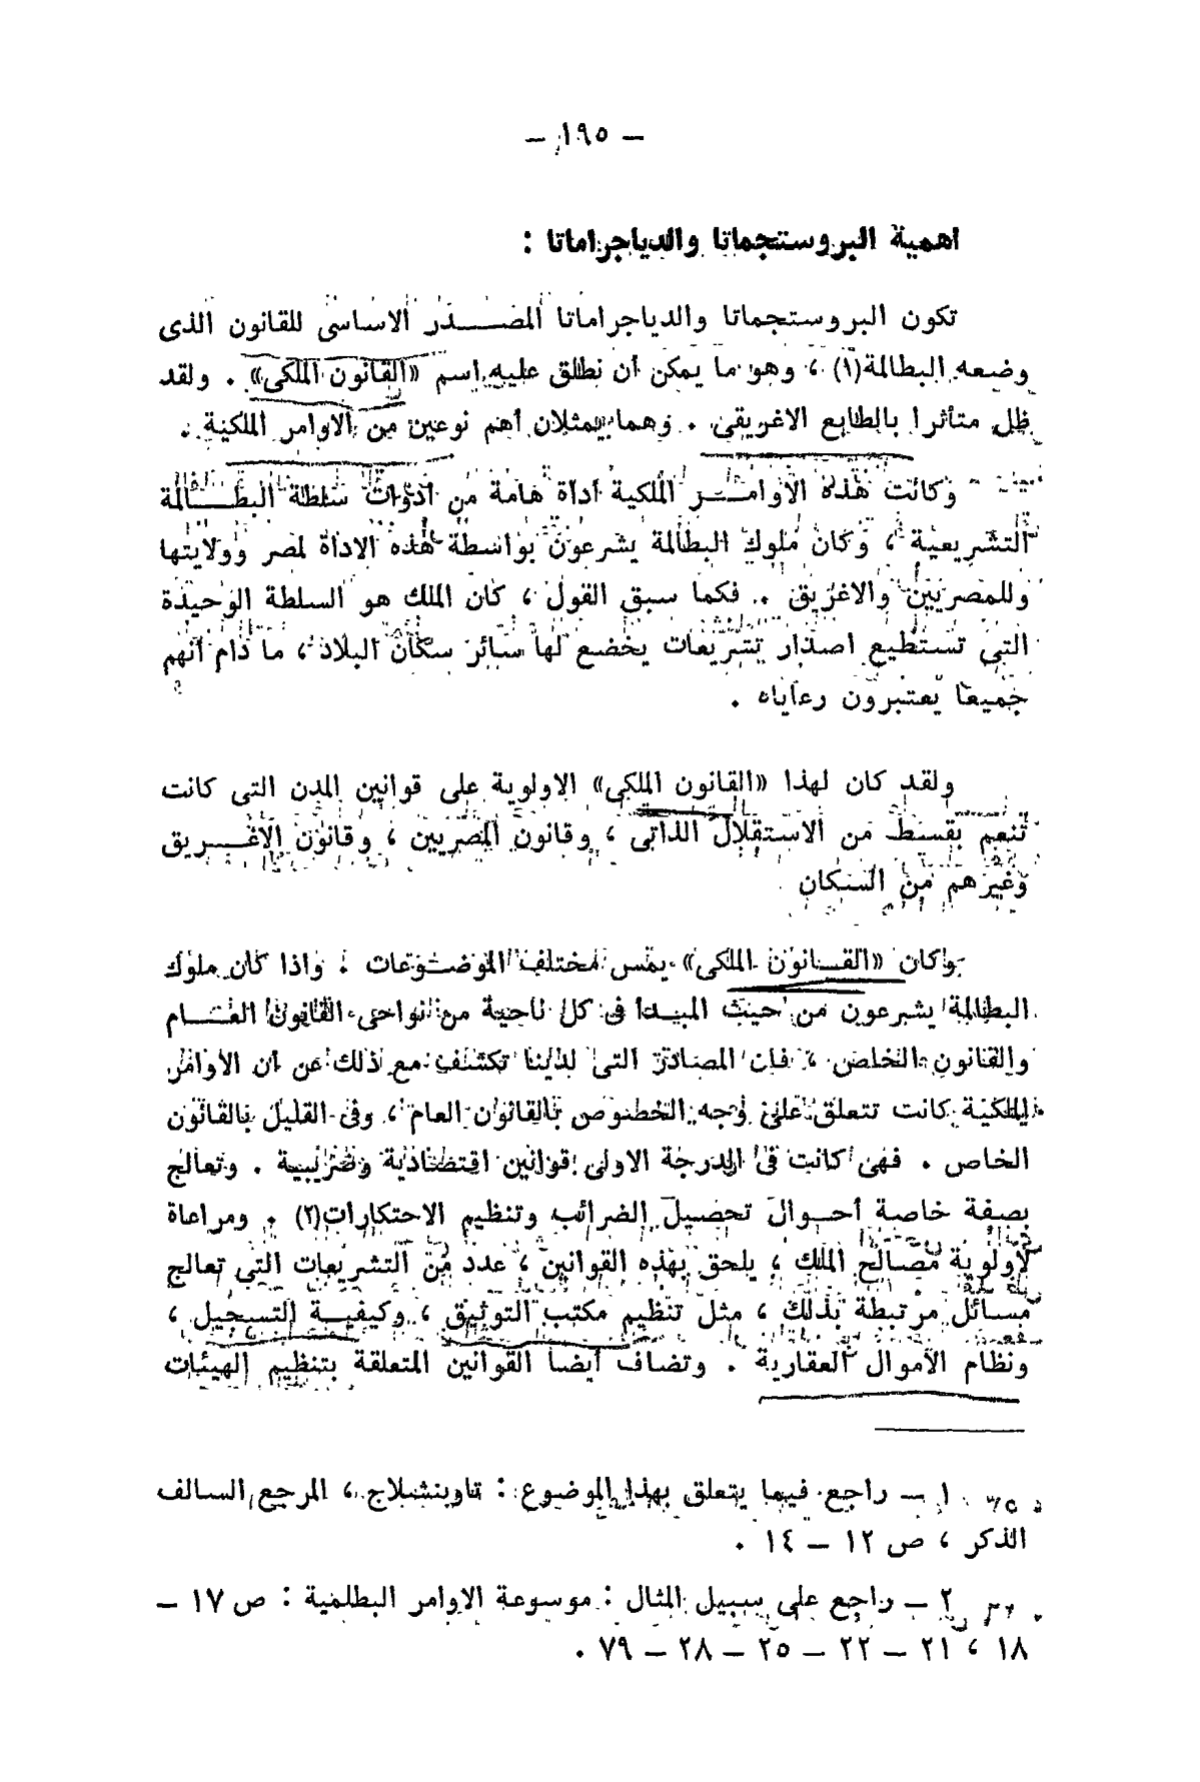 — ١٩٥ —
اهمية البروستجماتا والدياجراماتا :
تكون البروستجماتا والدياجراماتا المصدر الاساسى للقانون الذى
وضعه البطالمة(١) ، وهو ما يمكن أن نطلق عليه اسم «القانون الملكى» . ولقد
ظل متأثرا بالطابع الاغريقى . وهما يمثلان أهم نوعين من الاوامر الملكية .
وكانت هذه الأوامر الملكية أداة هامة من أدوات سلطة البطالمة
التشريعية ، وكان ملوك البطالمة يشرعون بواسطة هذه الاداة لمصر وولايتها
وللمصريين والاغريق . فكما سبق القول ، كان الملك هو السلطة الوحيدة
التى تستطيع اصدار تشريعات يخضع لها سائر سكان البلاد ، ما دام أنهم
جميعا يعتبرون رعاياه .
ولقد كان لهذا «القانون الملكى» الاولوية على قوانين المدن التى كانت
تنعم بقسط من الاستقلال الذاتى ، وقانون المصريين ، وقانون الاغريق
وغيرهم من السكان
وكان «القانون الملكى» يمس مختلف الموضوعات . واذا كان ملوك
البطالمة يشرعون من حيث المبدأ فى كل ناحية من نواحى القانون العام
والقانون الخاص ، فان المصادر التى لدينا تكشف مع ذلك عن ان الأوامر
الملكية كانت تتعلق على وجه الخصوص بالقانون العام ، وفى القليل بالقانون
الخاص . فهى كانت فى الدرجة الاولى قوانين اقتصادية وضريبية . وتعالج
بصفة خاصة أحوال تحصيل الضرائب وتنظيم الاحتكارات(٢) . ومراعاة
لأولوية مصالح الملك ، يلحق بهذه القوانين ، عدد من التشريعات التى تعالج
مسائل مرتبطة بذلك ، مثل تنظيم مكتب التوثيق ، وكيفية التسجيل ،
ونظام الأموال العقارية . وتضاف أيضا القوانين المتعلقة بتنظيم الهيئات
١ — راجع فيما يتعلق بهذا الموضوع : تاوبنشلاج ، المرجع السالف
الذكر ، ص ١٢ — ١٤ .
٢ — راجع على سبيل المثال : موسوعة الاوامر البطلمية : ص ١٧ —
١٨ ، ٢١ — ٢٢ — ٢٥ — ٢٨ — ٧٩ .